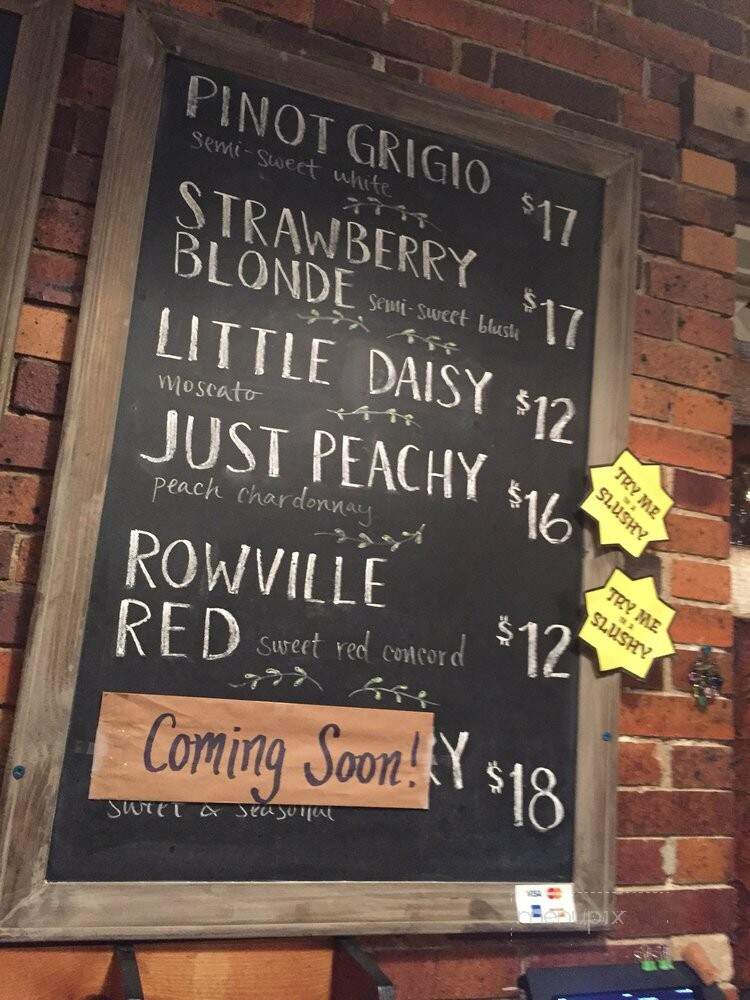 PINOT GRIGIO $17
semi-sweet white
STRAWBERRY
BLONDE semi-sweet blush $17
LITTLE DAISY $12
moscato
JUST PEACHY $16
peach chardonnay
TRY ME
SLUSHY
ROWVILLE
RED sweet red concord $12
TRY ME
SLUSHY
Coming Soon! RY $18
sweet & seasonal
VISA
menupix